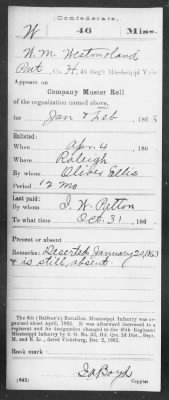 Confederate.
W 46 Miss.
W. M. Westmoland
Pvt, Co. H, 46 Reg't Mississippi Vols.
Appears on
Company Muster Roll
of the organization named above,
for Jan & Feb, 1863
Enlisted:
When Apr. 4, 186
Where Raleigh
By whom Oliver Ellis
Period 12 Mo
Last paid:
By whom I. W. Patton
To what time Oct. 31, 186
Present or absent
Remarks: Deserted January 20, 1863
& is still absent
The 6th (Balfour's) Battalion Mississippi Infantry was
organized about April, 1862. It was afterward increased to
a regiment and its designation changed to the 46th Regiment
Mississippi Infantry by S. O. No.
M. and E. L., dated Vicksburg, Dec. 2, 1862.
Book mark:
(642)
Copyist.